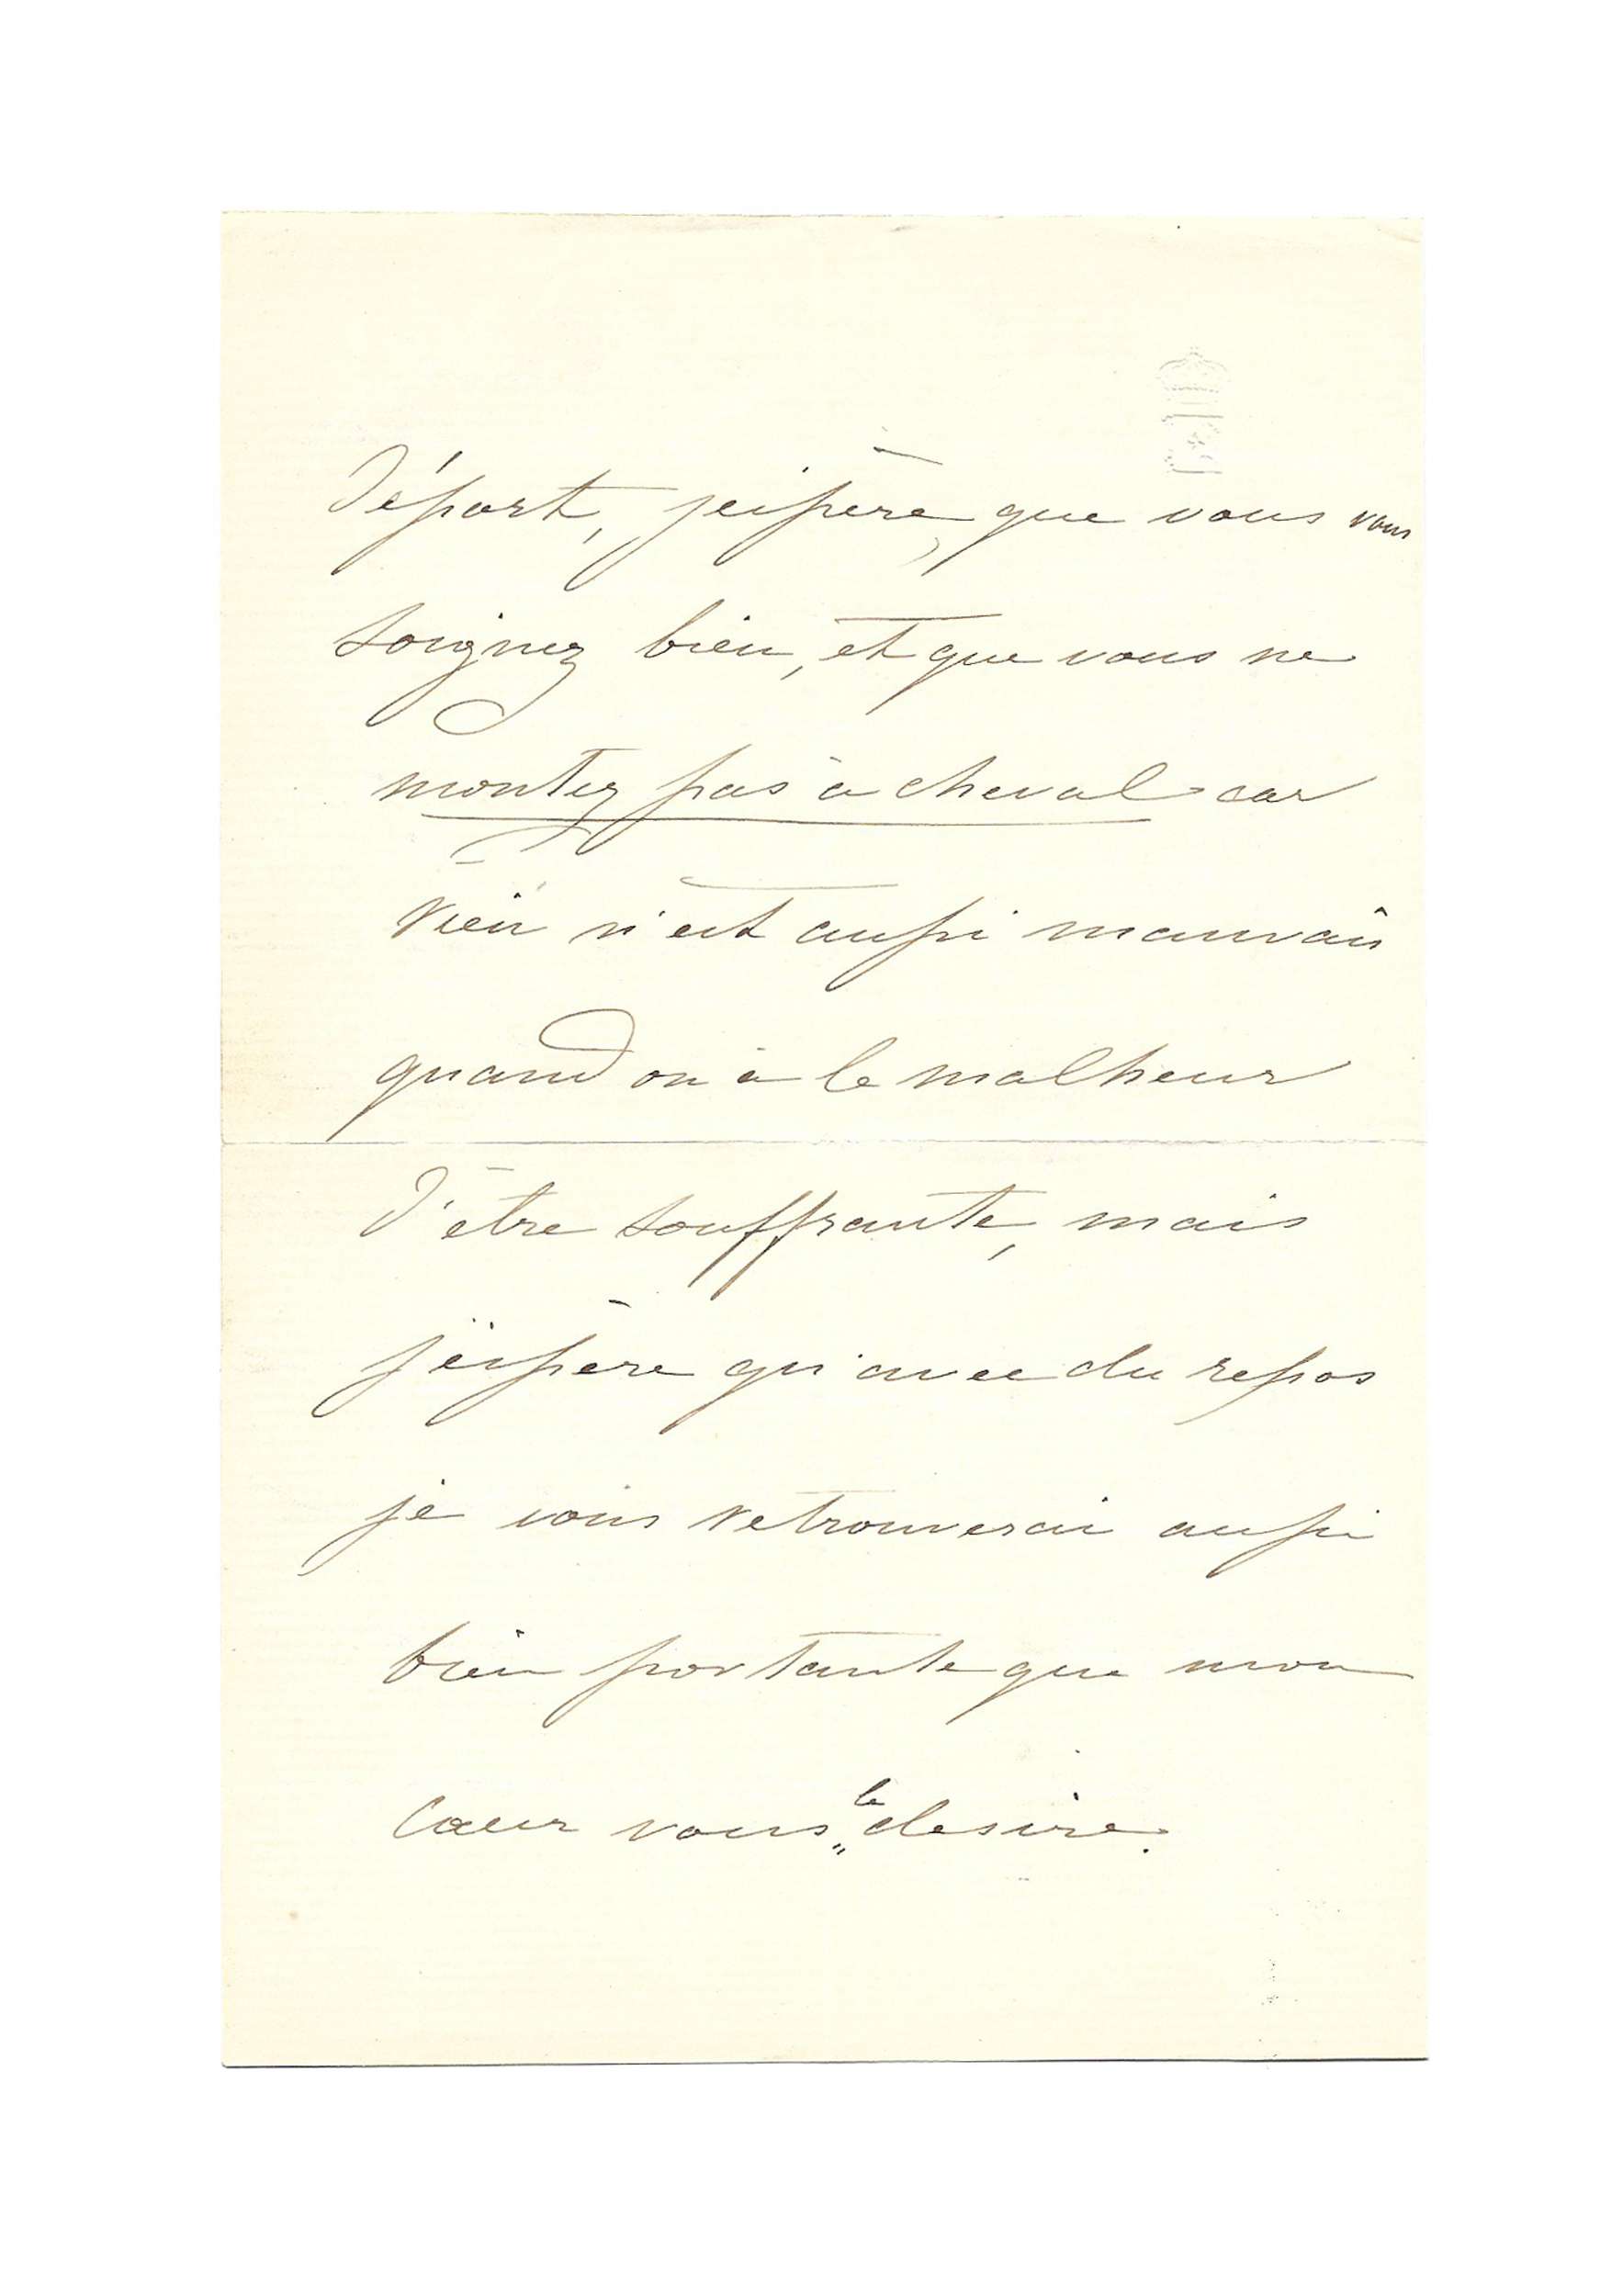 départ, j'espère, que vous vous
soignez bien, et que vous ne
montez pas à cheval car
rien n'est aussi mauvais
quand on à le malheur
d'être souffrante, mais
j'espère qu'avec du repos
je vous retrouverai aussi
bien portante que mon
Cœur vous le desire.